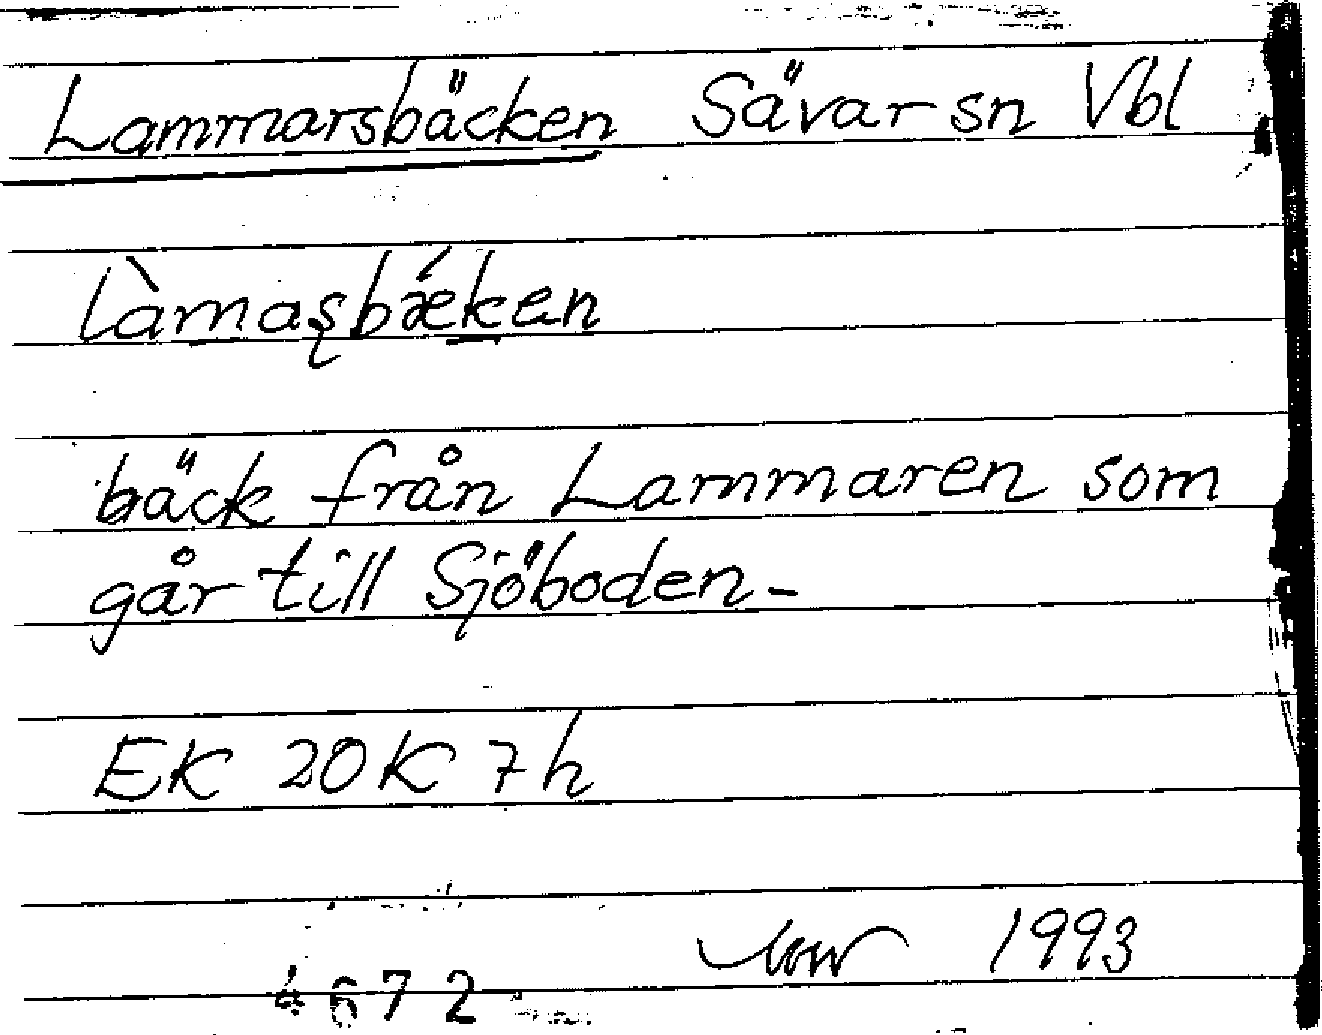 Lammarsbäcken Sävar sn Vbl
làmaʂbǽken
bäck från Lammaren som
går till Sjöboden -
EK 20K 7h
1993
4672